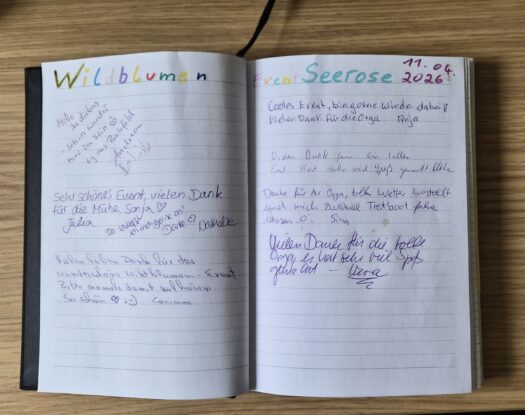 Wildblumen
Hallo
ihr Lieben
schön wieder
hier zu sein ♡
Andrea
Sehr schönes Event, vielen Dank
für die Mühe, Sanja ♡
Julia
Danke ♡ Nathalie
Vielen lieben Dank für das
wunderschöne Wildblumen - Event
Bitte niemals damit aufhören
So schön ♡ :-) Corinna
Event Seerose 11.04.
2026!
Cooles Event, bin gerne wieder dabei!
Vielen Dank für die Orga
Vielen Dank für ein tolles
Event. Hat sehr viel Spaß gemacht
Danke für die Orga, tolles Wetter bestellt
und mich zweimal Tretboot fahren
lassen - Sina
Vielen Dank für die tolle
Orga es hat sehr viel Spaß
gemacht - Vera